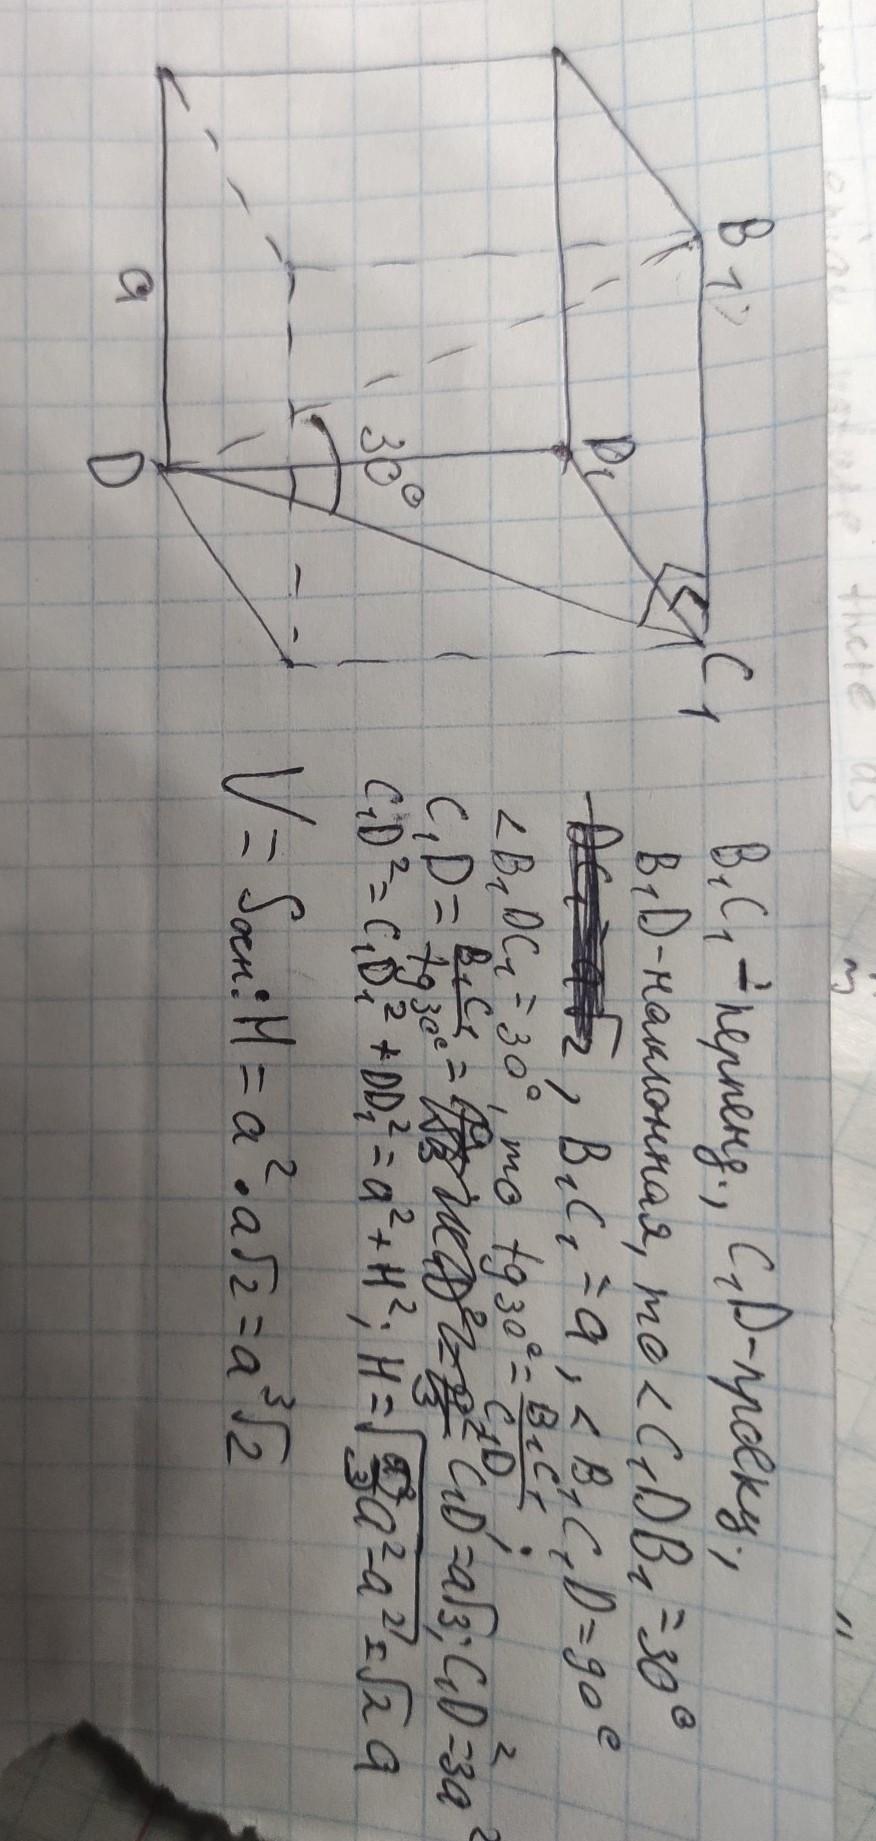 B₁
C₁
D₁
30°
a
D
B₁C₁ - перпенд., C₁D - проекц.,
B₁D - наклонная, то <C₁DB₁ = 30°
, B₁C₁ = a, <B₁C₁D = 90°
<B₁DC₁ = 30°, то tg30° = B₁C₁/C₁D;
C₁D = B₁C₁/tg30° = C₁D = a√3; C₁D² = 3a²
C₁D² = C₁D₁² + DD₁² = a² + H²; H = √3a² - a² = √2 a
V = Sосн · H = a² · a√2 = a³√2